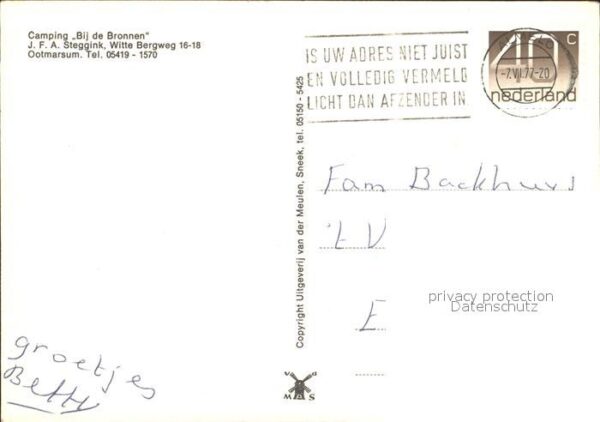 Camping „Bij de Bronnen"
J. F. A. Steggink, Witte Bergweg 16-18
Ootmarsum. Tel. 05419 - 1570
IS UW ADRES NIET JUIST
EN VOLLEDIG VERMELD
LICHT DAN AFZENDER IN
-7.VI.77-20
40 c
nederland
Copyright Uitgeverij van der Meulen, Sneek, tel. 05150 - 5425
Fam Backhuys
t V
E
privacy protection
Datenschutz
groetjes
Betty